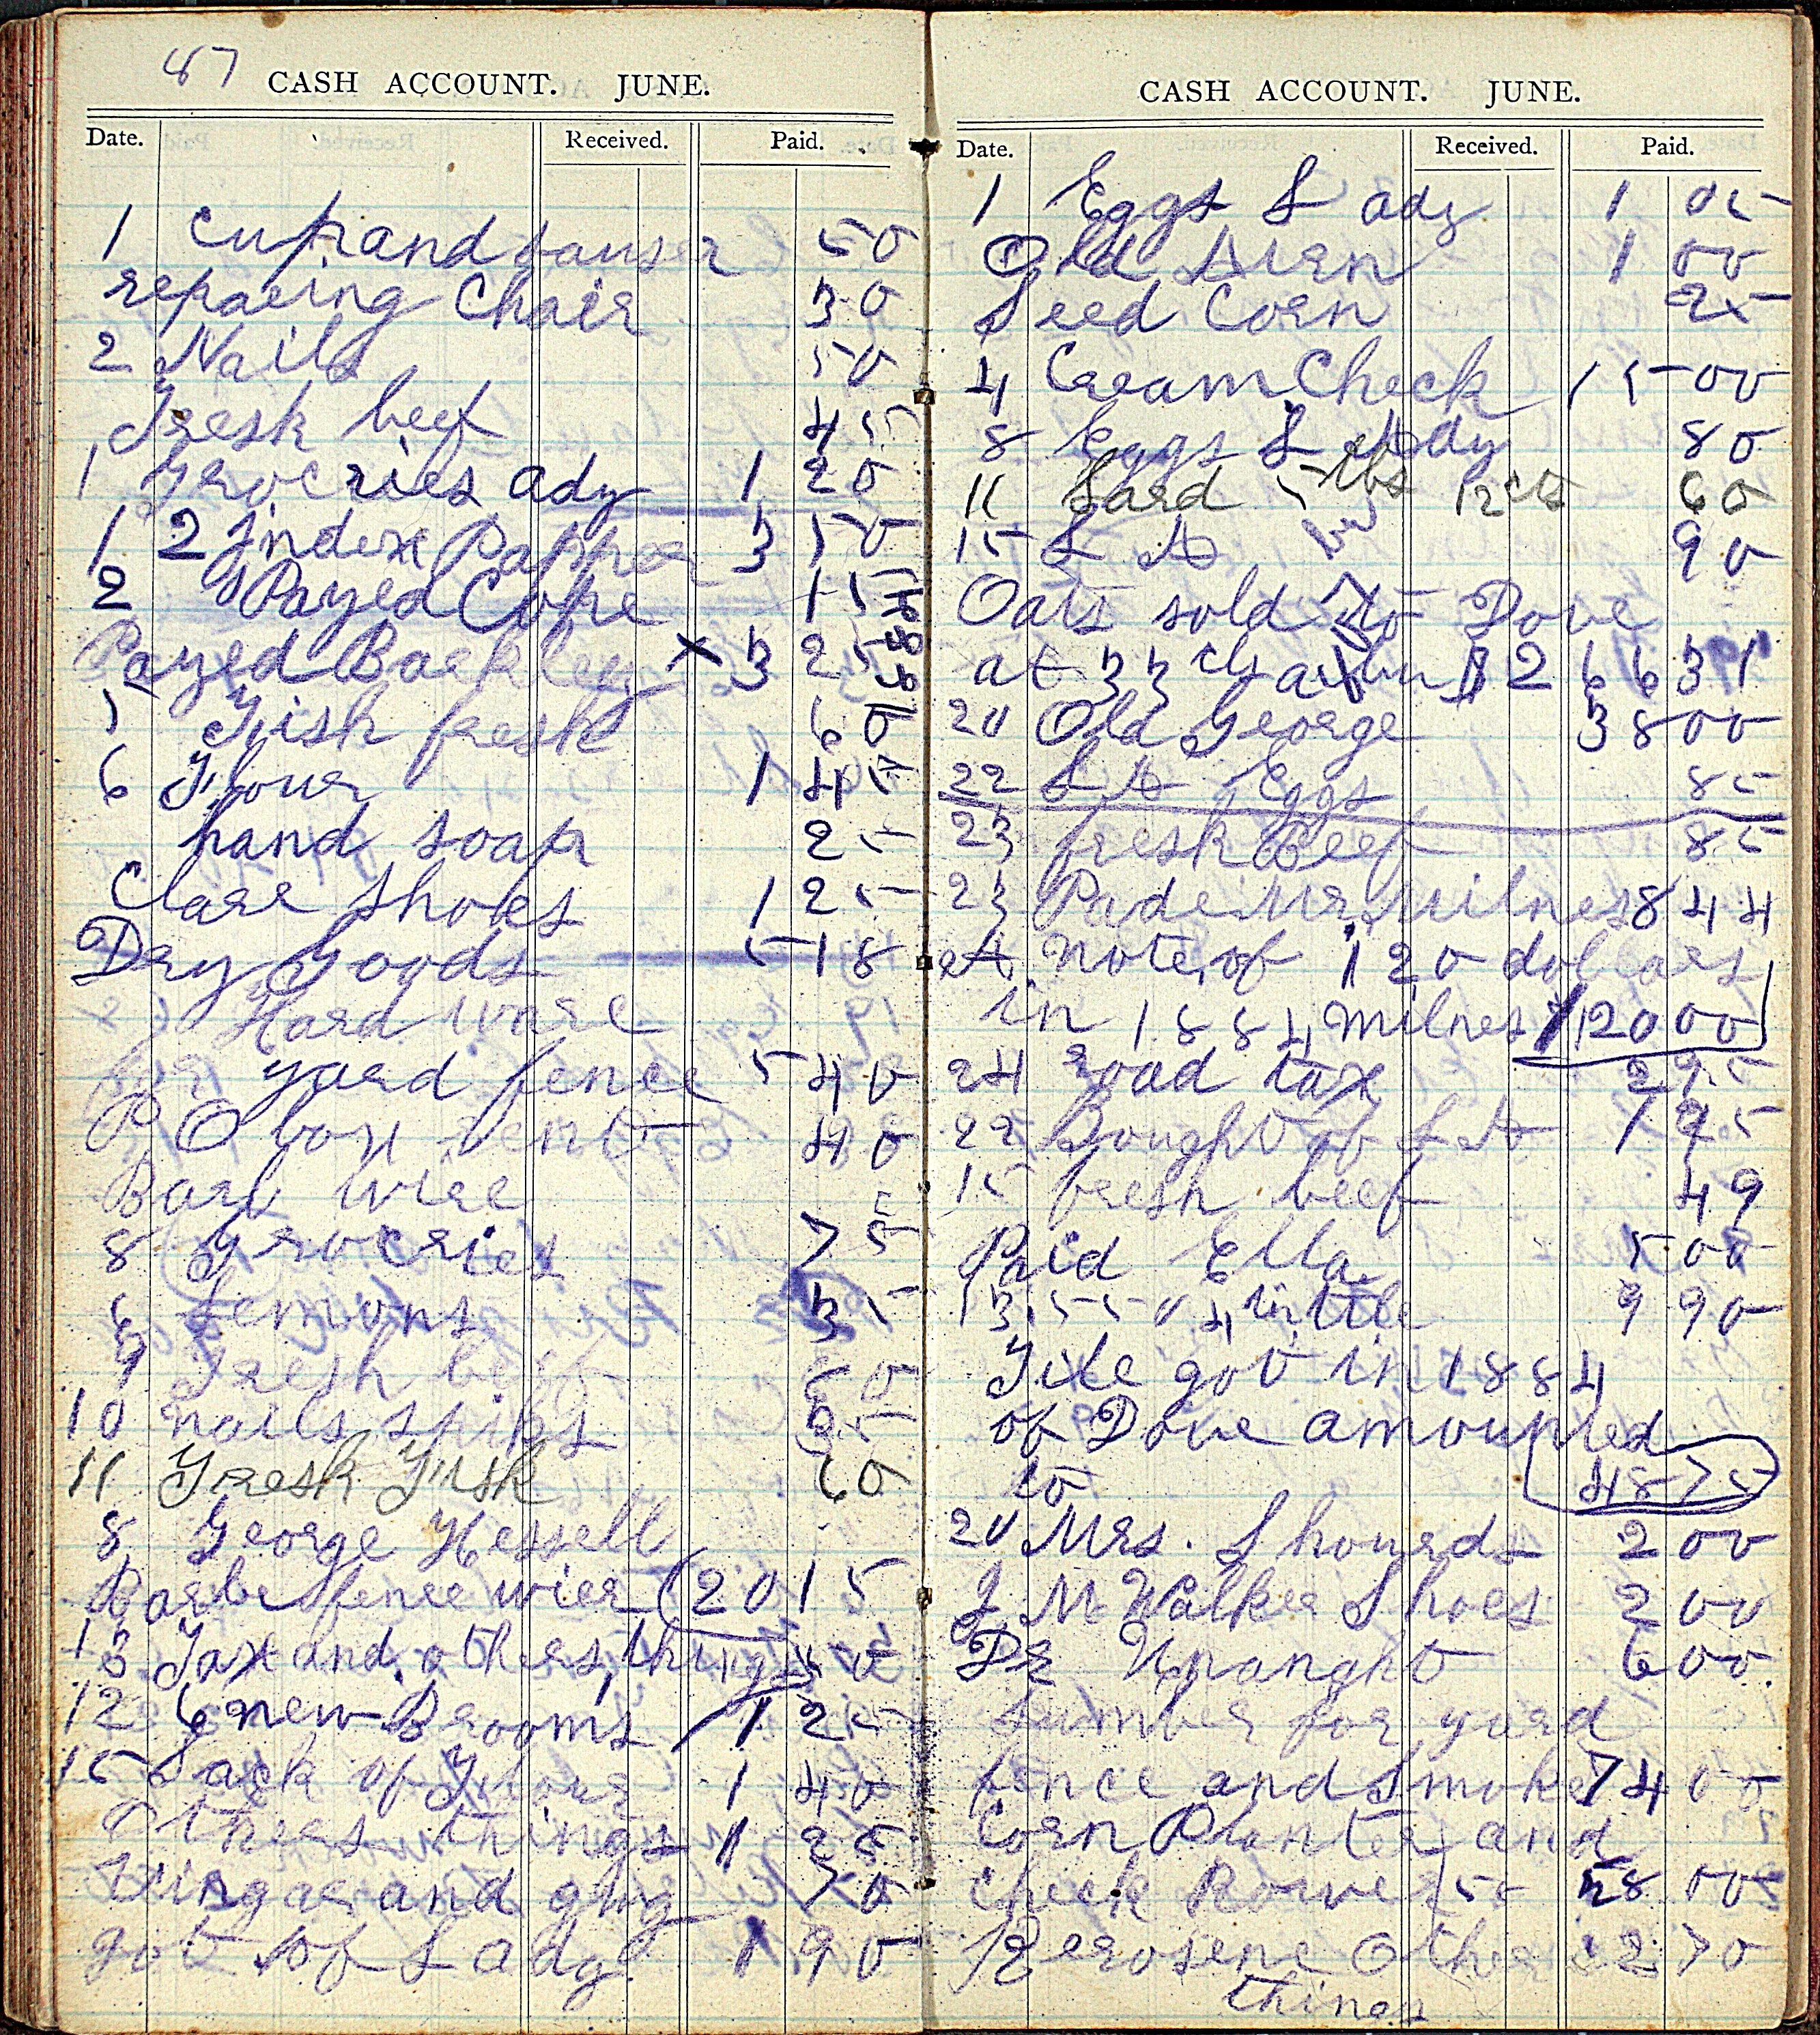 87
CASH ACCOUNT. JUNE.
Date. Received. Paid.
1 Cup and sauser 50
repaeing Chair 30
2 Nails 50
Fresh beef 45
1 Groceries ady 1 20
1 2 Index Pappor 3 50
2 Payed Cope 15
Payed Barkley x 3 25
5 Fish fresh 60
6 Flour 1 45
hand soap 25
Clare Shoes 1 25
Dry Goods 5 18
Hard ware
for yard fence 5 40
P O box rent 40
Barb wire
8 Groceries 75
6 Lemons 35
9 Fresh beef 60
10 nails spiks 35
11 Fresh Fish 60
8 George Hessell
Barbe fence wier (20 15
13 Tax and others things 50
12 6 new Brooms 1 25
15 Sack of Flour 1 40
Others things 1 25
Vinegar and gug 70
got of L ady 1 90
CASH ACCOUNT. JUNE.
Date. Received. Paid.
1 Eggs L ady 1 05
Old Iren 1 00
Seed Corn 25
4 Cream Check 15 00
8 Eggs L Ady 80
11 Lard 5 lbs 12 cts 60
15 L A 90
Oats sold to Dove
at 33 cts a bu $ 2 66 31
20 Old George 38 00
22 L A Eggs 85
23 fresh Beef 85
23 Pade Mr. Milnes 8 44
A Note of 120 dollars
in 1884 Milnes 120 00
24 road tax 2 95
22 Bought of L A 1 95
15 fresh beef 49
Paid Ella 5 00
13, 550 4 in tile 9 90
Tile got in 1884
of Dove amounted
to 48 75
20 Mrs. Shourds 2 00
J M Walker Shoes 2 00
Dr 6 00
Lumber for yard
fence and Smoke 74 00
Corn Planter and
Check Rower 58 00
Kerosene Other 2 70
things